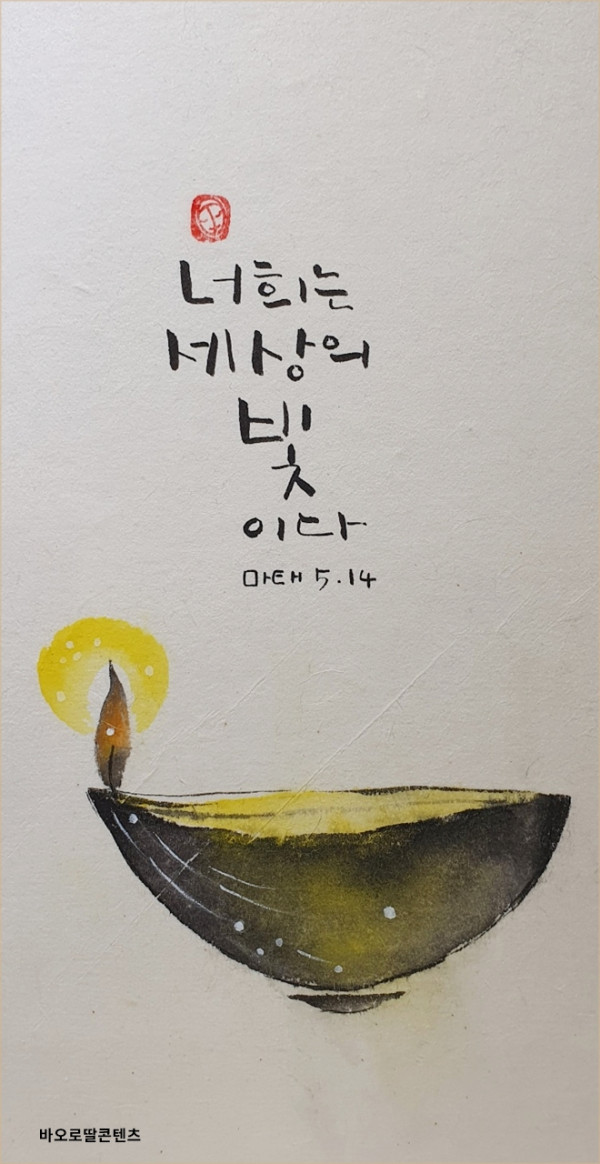 너희는
세상의
빛
이다
마태 5.14
바오로딸콘텐츠